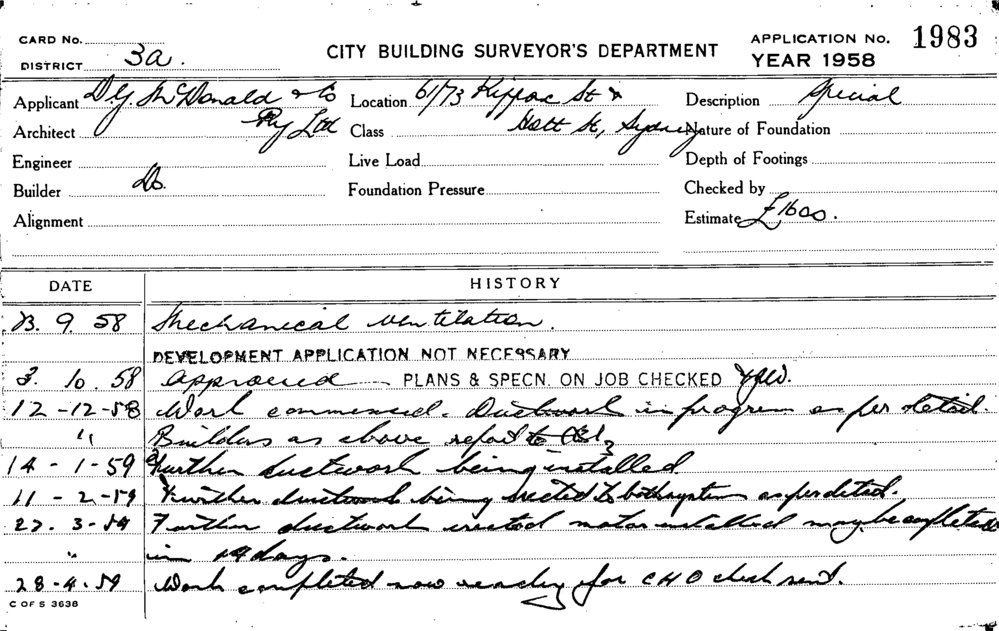 CARD No.
CITY BUILDING SURVEYOR'S DEPARTMENT
APPLICATION No. 1983
DISTRICT 3a.
YEAR 1958
Applicant D.Y. McDonald & Co
Location 61/73 Kippax St &
Description Special
Architect Pty Ltd
Class Holt St, Sydney
Nature of Foundation
Engineer
Live Load
Depth of Footings
Builder Do.
Foundation Pressure
Checked by
Alignment
Estimate £1600.
DATE HISTORY
23. 9. 58 Mechanical ventilation.
DEVELOPMENT APPLICATION NOT NECESSARY
3. 10. 58 Approved PLANS & SPECN. ON JOB CHECKED
12-12-58 Work commenced. Ductwork in progress as per detail.
" Builders as above report to
14-1-59 Further ductwork being installed
11-2-59 Further ductwork being erected to both systems as per detail.
27. 3-59 Further ductwork erected motor installed may be completed
" in 14 days.
28-4-59 Work completed now ready for C H O check sent.
C OF S 3638